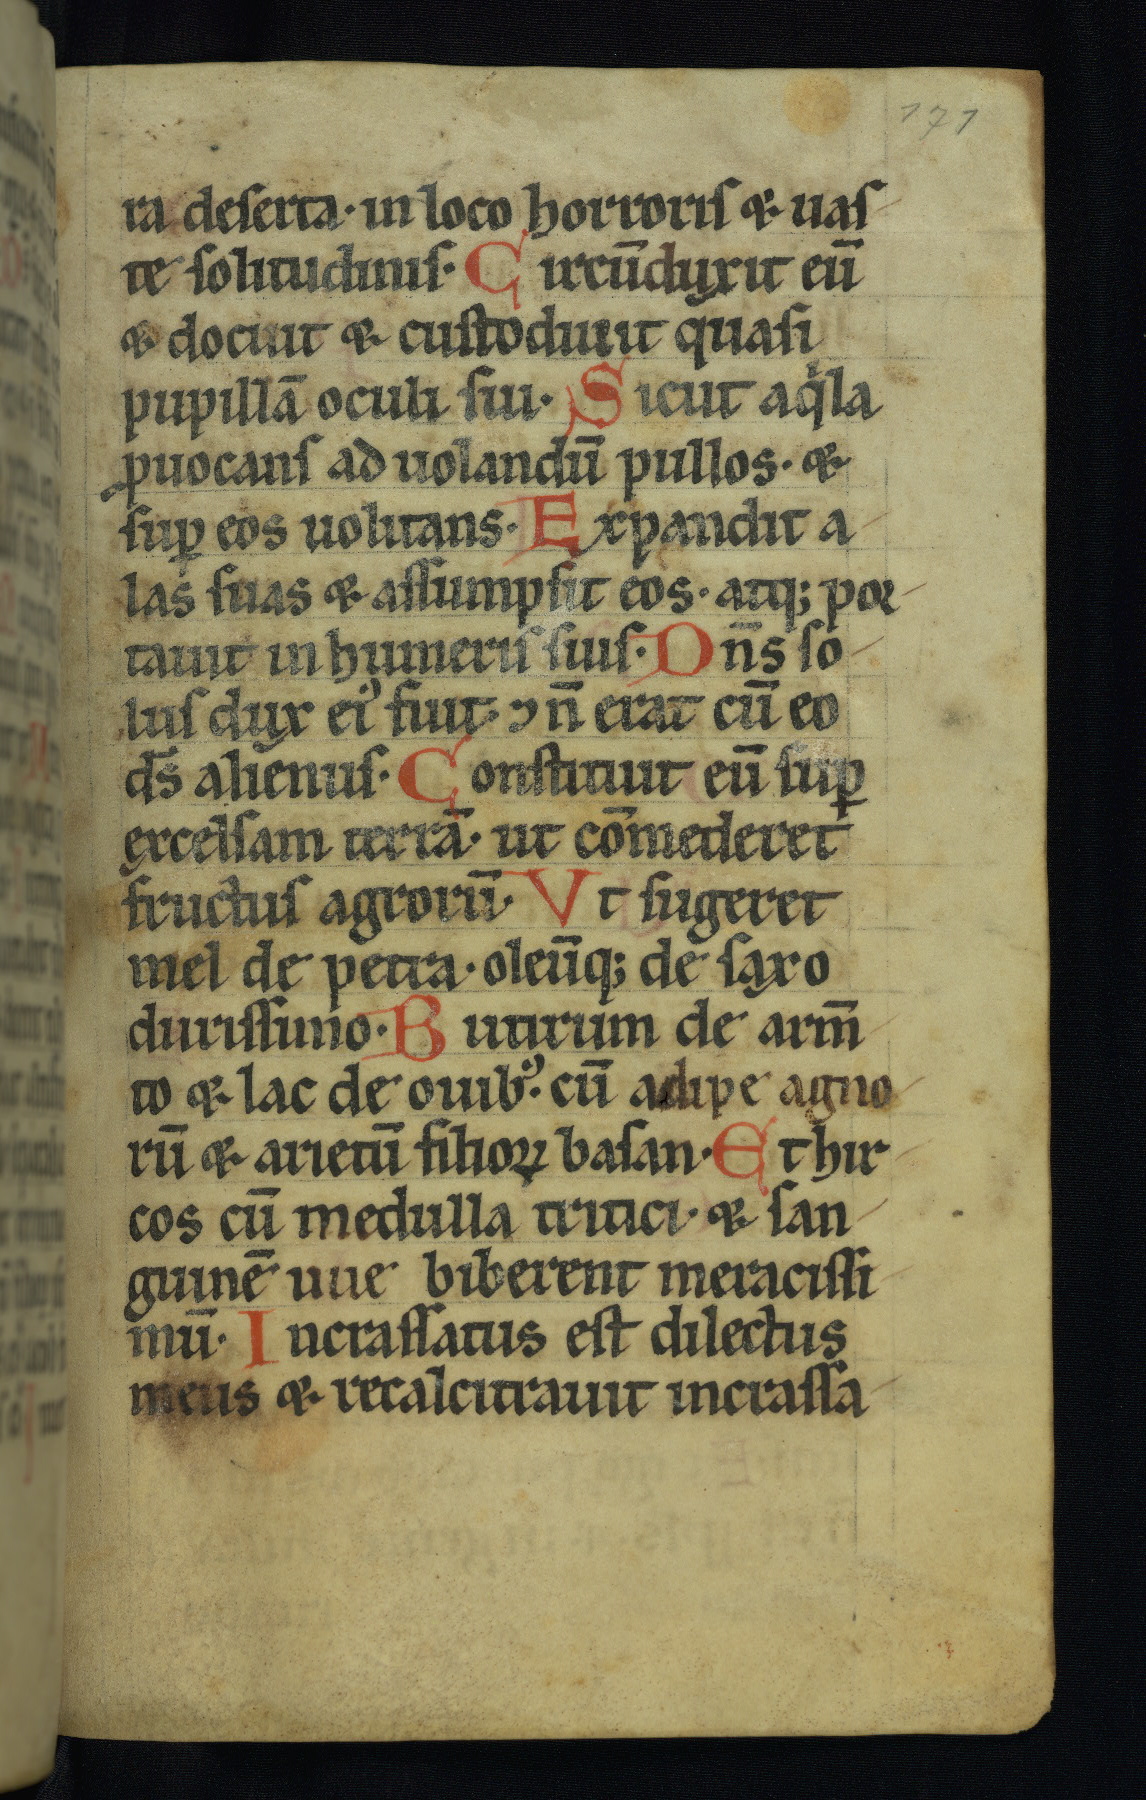 171
ra deserta· in loco horroris & uas
te solitudinis· Circūduxit eū
& docuit & custodiuit quasi
pupillā oculi sui· Sicut aqͥla
ꝓuocans ad uolandū pullos· &
suꝑ eos uolitans· Expandit a
las suas & assumpsit eos· atq; por
tauit in humeris suis· Dn̄s so
lus dux eiꝰ fuit· ⁊ n̄ erat cū eo
ds̄ alienus· Constituit eū suꝑ
excelsam terrā· ut cōmederet
fructus agrorū· Vt sugeret
mel de petra· oleūq; de saxo
durissimo· Butirum de arm̄
to & lac de ouibꝰ· cū adipe agno
rū & arietū filioꝝ basan· Et hir
cos cū medulla tritici· & san
guinē uue biberent meracissi
mū· Incrassatus est dilectus
meus & recalcitrauit incrassa